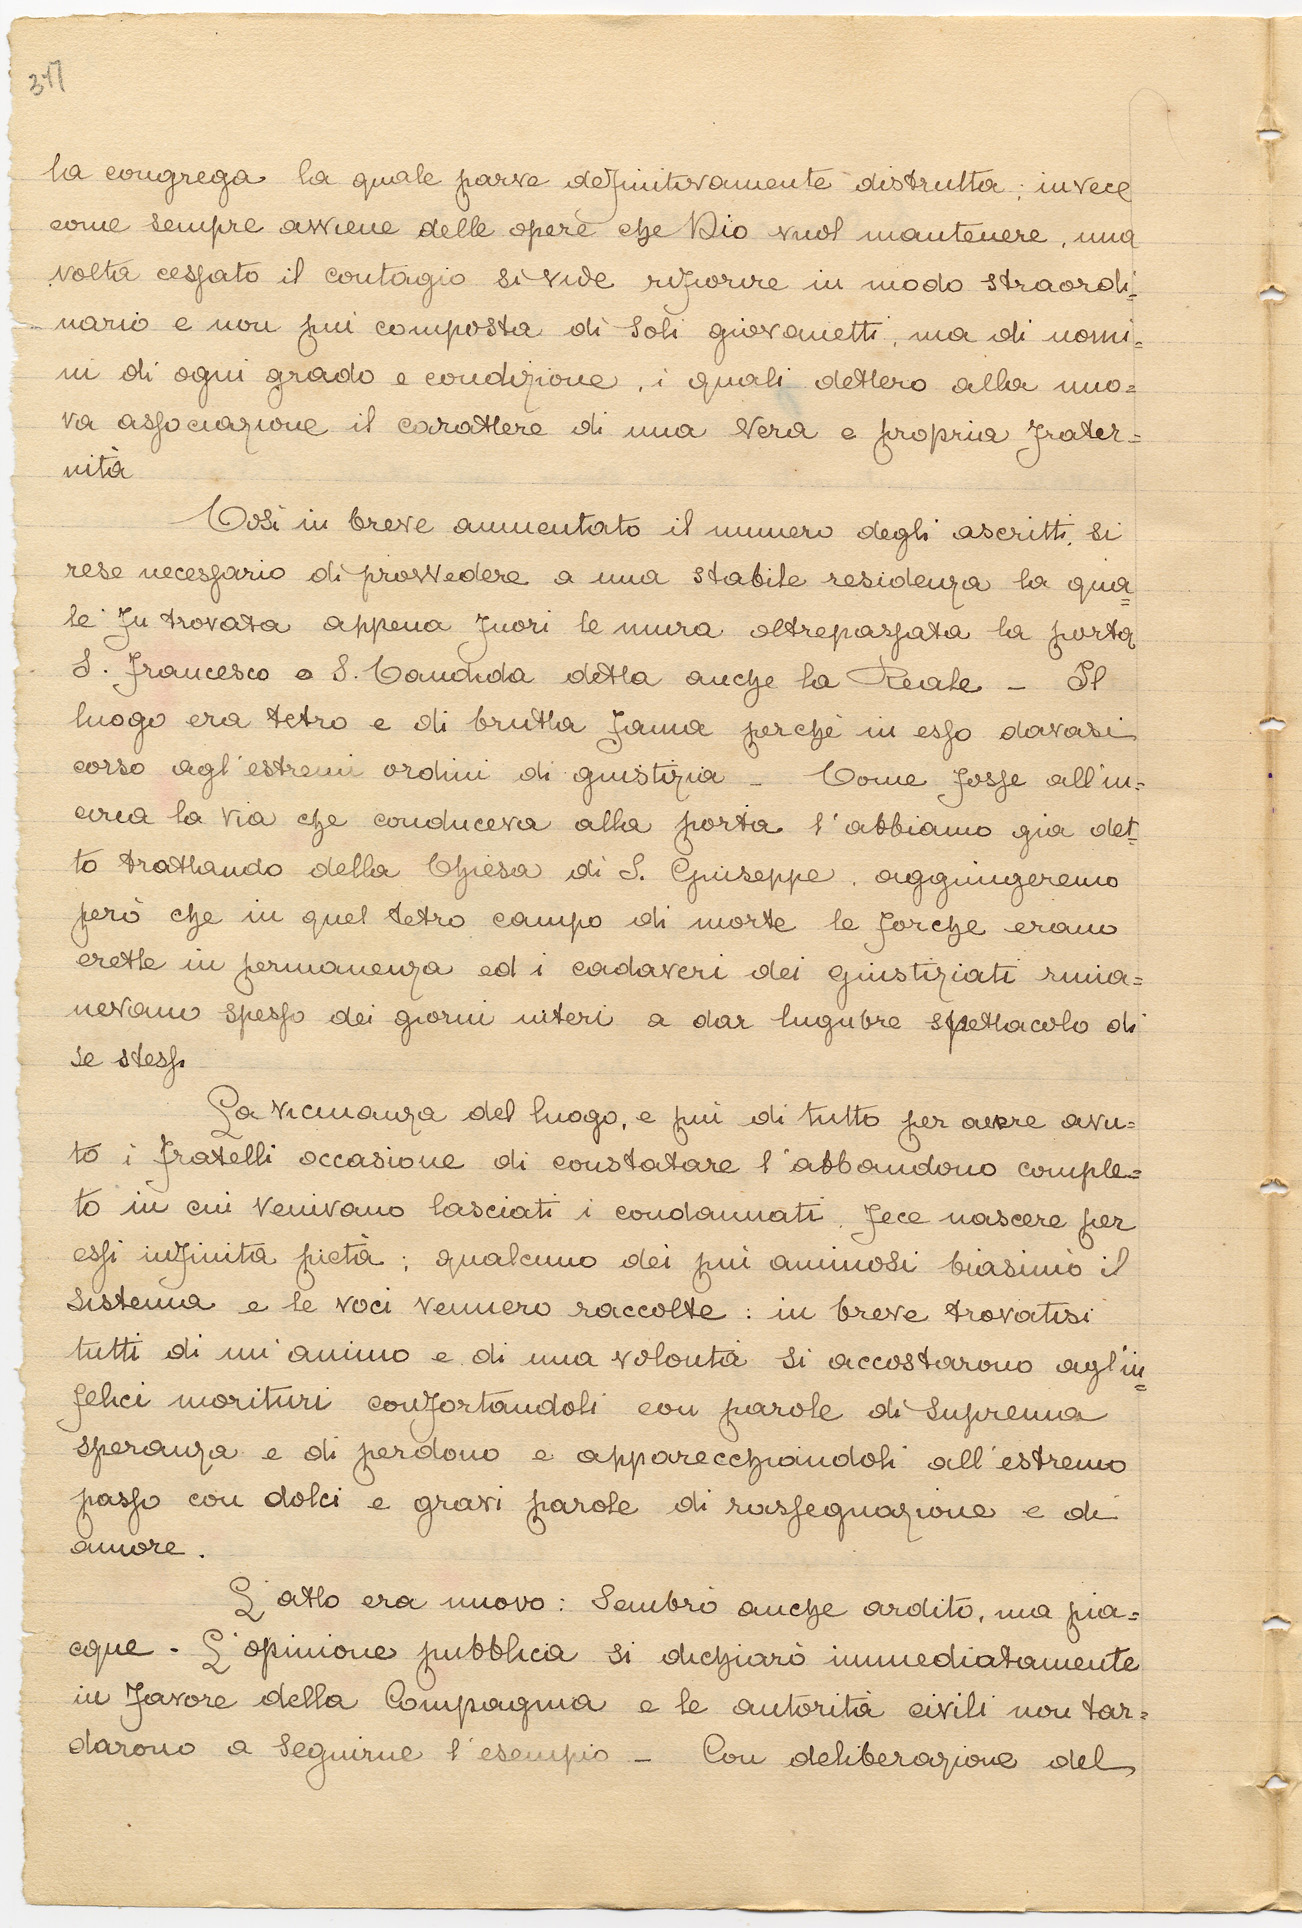 317
la congrega la quale parve definitivamente distrutta; invece
come sempre avviene delle opere che Dio vuol mantenere, una
volta cessato il contagio si vide rifiorire in modo straordi=
nario e non più composta di soli giovanetti, ma di uomi=
ni di ogni grado e condizione, i quali dettero alla nuo=
va associazione il carattere di una vera e propria frater=
nità
Così in breve aumentato il numero degli ascritti, si
rese necessario di provvedere a una stabile residenza la qua=
le fu trovata appena fuori le mura oltrepassata la porta
S. Francesco o S. Candida detta anche la Reale - Il
luogo era tetro e di brutta fama perchè in esso davasi
corso agl'estremi ordini di giustizia - Come fosse all'in=
circa la via che conduceva alla porta l'abbiamo già det=
to trattando della Chiesa di S. Giuseppe, aggiungeremo
però che in quel tetro campo di morte le forche erano
erette in permanenza ed i cadaveri dei giustiziati rima=
nevano spesso dei giorni interi a dar lugubre spettacolo di
se stessi
La vicinanza del luogo, e più di tutto per avere avu=
to i fratelli occasione di constatare l'abbandono comple=
to in cui venivano lasciati i condannati, fece nascere per
essi infinita pietà; qualcuno dei più animosi biasimò il
sistema e le voci vennero raccolte: in breve trovatisi
tutti di un'animo e di una volontà si accostarono agl'in=
felici morituri confortandoli con parole di suprema
speranza e di perdono e apparecchiandoli all'estremo
passo con dolci e gravi parole di rassegnazione e di
amore.
L'atto era nuovo: sembrò anche ardito, ma pia=
cque - L'opinione pubblica si dichiarò immediatamente
in favore della Compagnia e le autorità civili non tar=
darono a seguirne l'esempio - Con deliberazione del